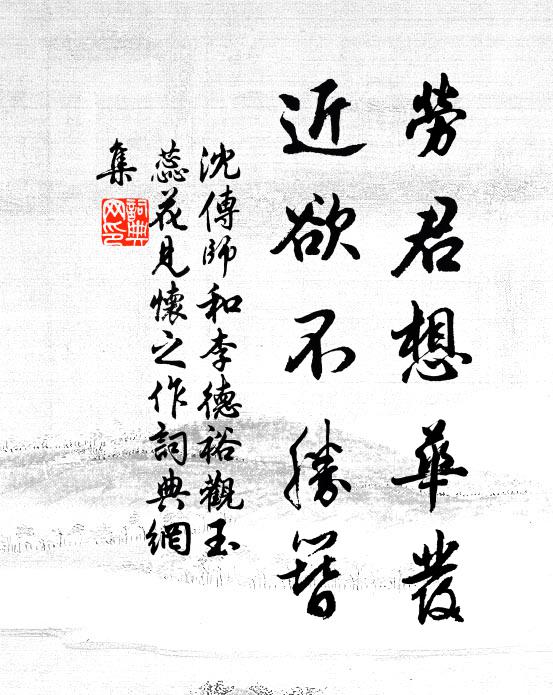 勞君想華發
近欲不勝簪
沈傳師和李德裕觀玉
蕊花見懷之作詞典網
集
詞典
網印